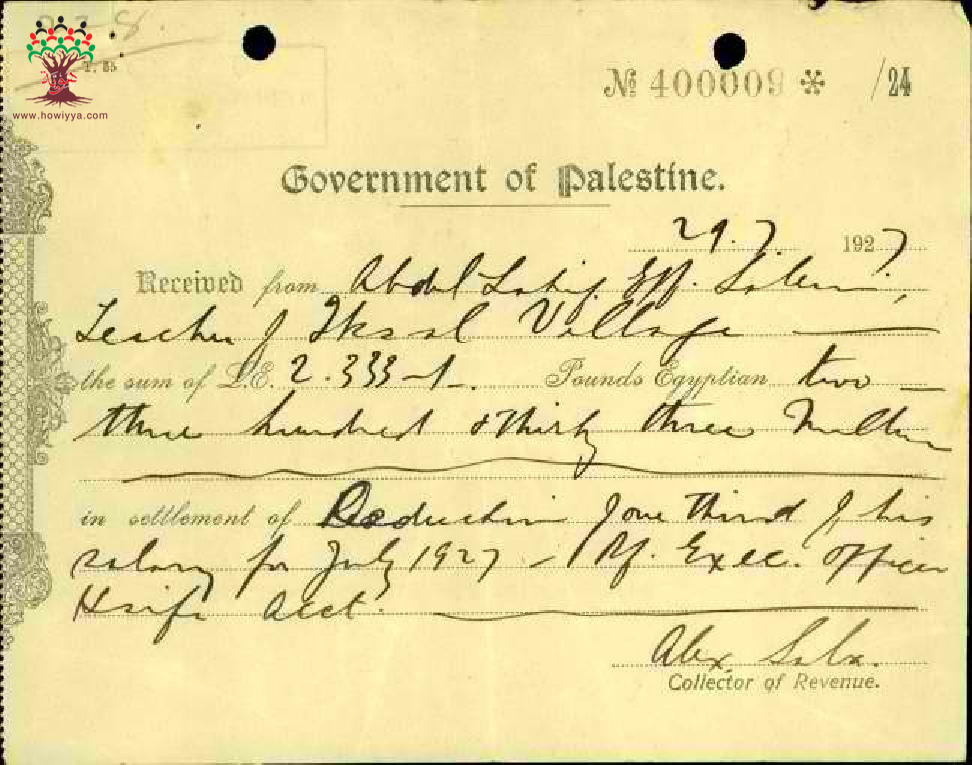 T. 85
www.howiyya.com
№ 400009 * /24
Government of Palestine.
29.7. 1927
Received from Abdul Latif Eff. Salem,
Teacher of Iksal Village
the sum of L.E. 2.333-/-. Pounds Egyptian two
three hundred & thirty three Mills
in settlement of Deduction of one third of his
salary for July 1927 - Rf. Exec. Officer
Haifa Acct.
Alex. Saba.
Collector of Revenue.